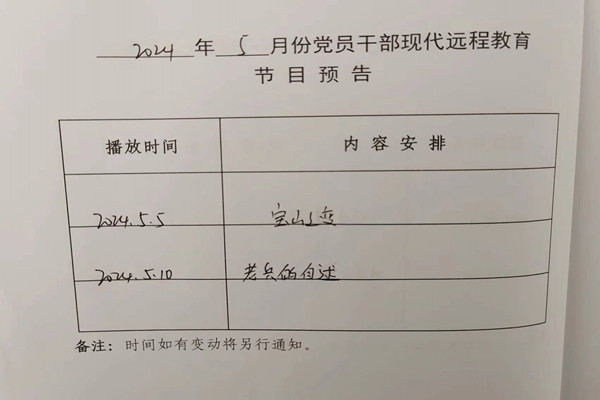 2024年5月份党员干部现代远程教育
节目预告
播放时间 内容安排
2024.5.5 宝山之变
2024.5.10 老兵的自述
备注：时间如有变动将另行通知。